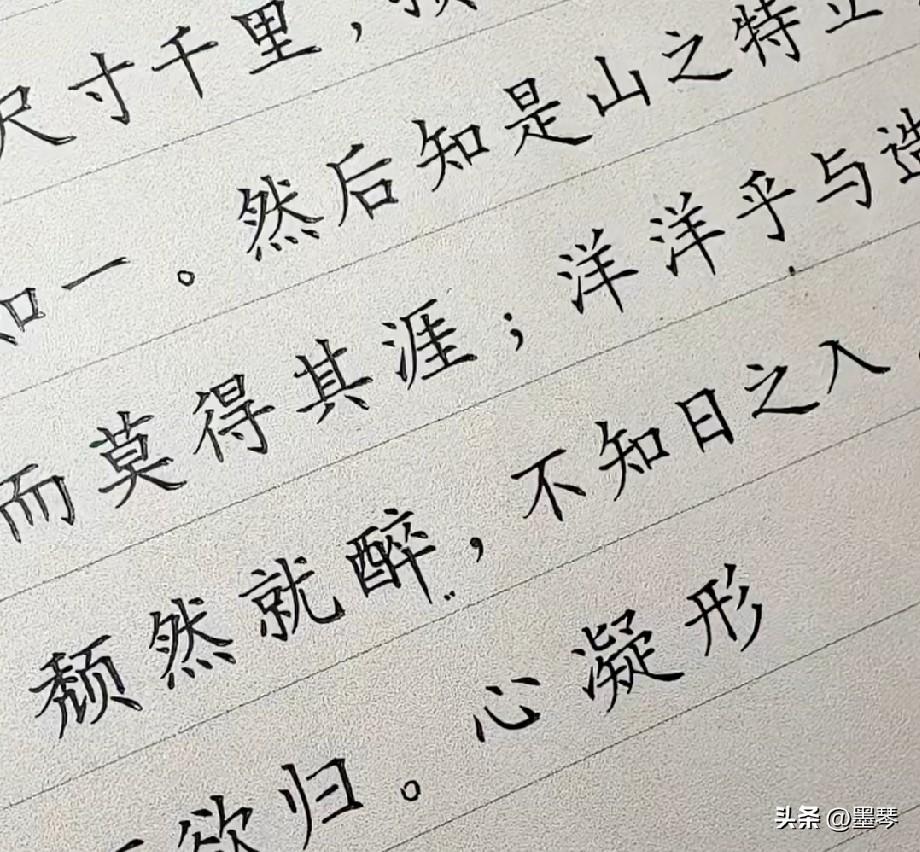 尺寸千里，
一。然后知是山之特立
而莫得其涯；洋洋乎与造
颓然就醉，不知日之入
欲归。心凝形
头条 @墨琴